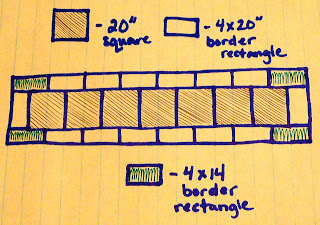 - 20"
square
- 4x20"
border
rectangle
- 4x14
border
rectangle